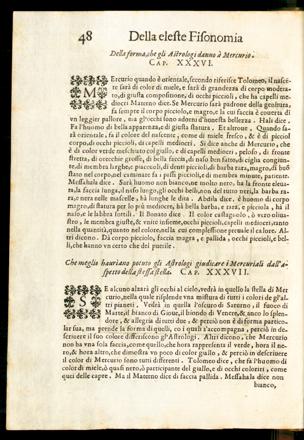 48 Della celeste Fisonomia
Della forma, che gli Astrologi danno à Mercurio.
CAP. XXXVI.
MErcurio quando è orientale, secondo riferisce Tolomeo, il nascite
sarà di color di miele, e sarà di grandezza di corpo moderato,
di giusta compositione, di occhi piccoli, che ha capelli mediocri
Materno dice. Se Mercurio sarà padrone della genitura,
fa sempre il corpo piccolo, e magro, e la sua faccia è coverta di
vn leggier pallore, ma gl'occhi sono adorni d'honesta bellezza. Hali dice.
Fa l'huomo di bella apparenza, di giusta statura. Et altroue. Quando sarà
orientale, fa il colore del nascente, come di miele fresco, & è di picciol
corpo, di occhi piccioli, di capelli mediocri. Si dice anche di Mercurio, che
è di color verde mescolato col giallo, e di capelli mediocri, pelosi, di fronte
stretta, di orecchie grosse, di bella faccia, di naso ben fatto, di ciglia congiunte,
di membra larghe, di denti piccioli, di barba rara, magro, di
nel caminare fa i passi
Messahala dice. Sarà huomo non bianco, ne molto nero, ha la fronte eleuata,
la faccia lunga, il naso lungo, gli occhi belli, non del tutto neri, la barba rara,
e nera nelle mascelle, hà lunghe le dita. Abhila dice. è huomo di corpo
magro, di statura per lo più mediocre, hà bella barba, e rara, e picciola, hà il
naso, e le labbra sottili. Il Bonato dice. Il color castagnolo, ò vero oliuastro,
le membra giuste, & vnite insieme, occhi piccioli, capelli mediocri, tanto
nella quantità, quanto nel colore, nella cui complessione preuale il calore. Altri
dicono. Dà corpo picciolo, faccia magra, e pallida, occhi piccioli, e belli,
che hanno vn certo che del putrile.
Che meglio hauriano potuto gli Astrologi giudicare i Mercuriali dall'aspetto
della stessa stella. CAP. XXXVII.
SE alcuno alzarà gli occhi al cielo, vedrà in quello la stella di Mercurio,
nella quale risplende vna mistura di tutti i colori degl'altri
pianeti. Vedrà in quella l'oscuro di Saturno, il fuoco di
Marte, il bianco di Gioue, il biondo di Venere, & anco lo splendore,
& allegria di tutti due, & perciò non è di forma particolar
sua, ma prende la forma di quelli, co i quali s'accompagna, perciò in descriuere
il suo colore differiscono gl'Astrologi. Altri dicono, che Mercurio
non ha vna sola faccia, come quello, che hora rappresenta il verde, hora il nero,
& hora altro, che dimostra vn poco di color giallo, & perciò in descriuere
il color di Mercurio sono tutti differenti. Tolomeo dice, che fa l'huomo di
color di miele, ò quasi nerò, ò participante del giallo, e di occhi coloriti, come
quei delle capre. Ma il Materno dice di faccia pallida. Messahala dice non
bianco,